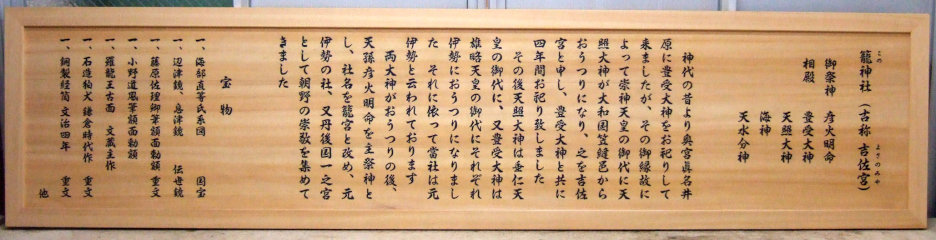 籠神社(古称 吉佐宮)
この
よさのみや
御祭神 彦火明命
相殿 豊受大神
天照大神
海神
天水分神
神代の昔より奥宮真名井
原に豊受大神をお祀りして
来ましたが、その御縁故に
よって崇神天皇の御代に天
照大神が大和国笠縫邑から
おうつりになり、之を吉佐
宮と申し、豊受大神と共に
四年間お祀り致しました
その後天照大神は垂仁天
皇の御代に、又豊受大神は
雄略天皇の御代にそれぞれ
伊勢におうつりになりまし
た それに依って当社は元
伊勢と云われております
両大神がおうつりの後、
天孫彦火明命を主祭神と
し、社名を籠宮と改め、元
伊勢の社、又丹後国一之宮
として朝野の崇敬を集めて
きました
宝物
一、海部直等氏系図 国宝
一、辺津鏡、息津鏡 伝世鏡
一、藤原佐理卿筆額面勅額 重文
一、小野道風筆額面勅額
一、羅龍王古面 文蔵主作
一、石造狛犬 鎌倉時代作 重文
一、銅製経筒 文治四年 重文
他